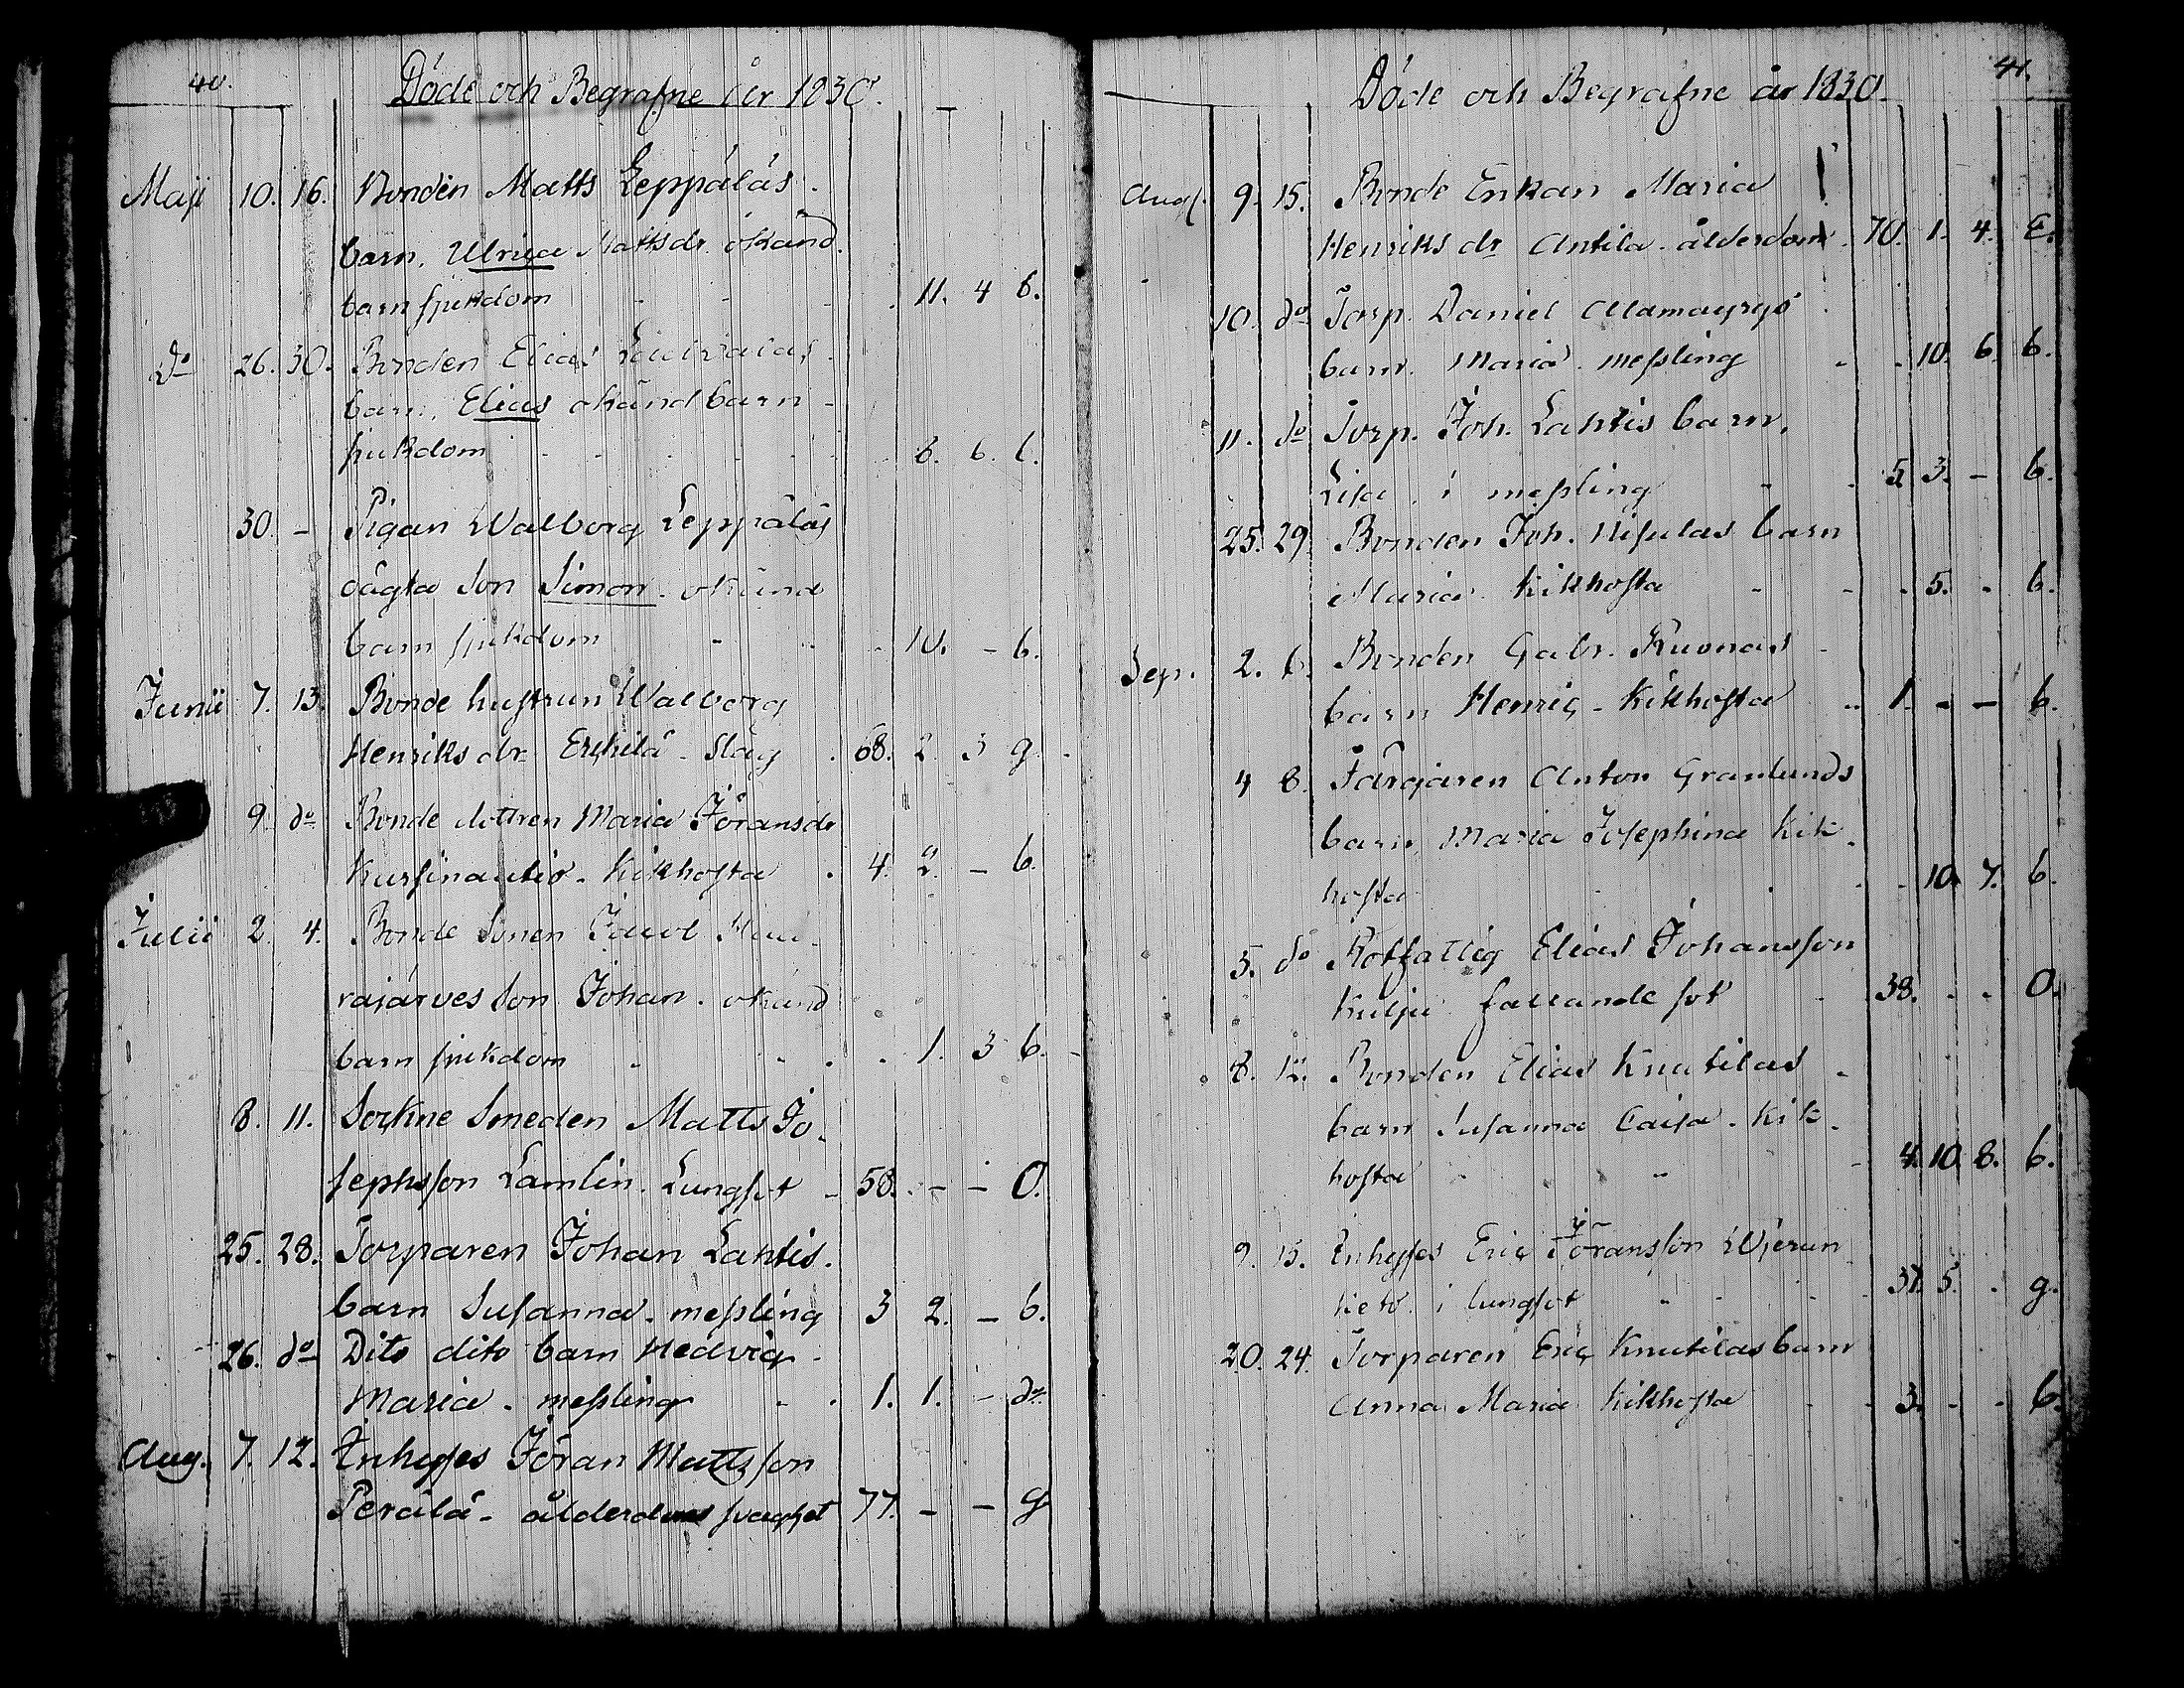 40.
Döde och Begrafne år 1830.
Maji 10. 16. Bonden Matts Leppäläs
barn. Ulrica Mattsdr. okänd
barnsjukdom - - - 11. 4 b.
Do 26. 30. Bonden Elias
barn. Elias okänd barn-
sjukdom - - - 8. 6. b.
30. - Pigan Walborg Leppäläs
oägta Son Simon. okänd
barnsjukdom - - 10. - b.
Junii 7. 13. Bonde hustrun Walborg
Henriks dr Erkilä - Slag . 68. 2. 3 g.
9. do Bonde dottren Maria Jöransdr
Kursinautio. Kikhosta . 4. 2. - b.
Julii 2. 4. Bonde Sonen Jacob Hau-
rajärves Son Johan. okänd
barnsjukdom - - . 1. 3 b.
8. 11. Sockne Smeden Matts Jo-
sephsson Lamlin. Lungsot - 58. - - O.
25. 28. Torparen Johan Lahtis.
barn Susanna. messling 3 2. - b.
26. do Dito dito barn Hedvig
Maria. messling - . 1. 1. - do
Aug. 7. 12. Inhyses Jöran Mattsson
Perälä - ålderdoms svaghet 77. - - g
41.
Döde och Begrafne år 1830.
Aug. 9. 15. Bonde Enkan Maria
Henriks dr Antila. ålderdom. 70. 1. 4. E.
10. do Torp. Daniel Alamayryö
barn. Maria. messling - . 10. 6. b.
11. do Torp. Joh. Lahtis barn.
Lisa. i messling - . 5. 3. - b.
25. 29. Bonden Joh. Nisulas barn
Maria. Kikhosta - - . 5. . b.
Sep. 2. 6. Bonden Gabr. Kuonas
barn Henric - Kikhosta .. 1. - - b.
4 8. Färgaren Anton Granlunds
barn Maria Josephina Kik-
hosta . . . 10. 7. b.
5. do Rotfattig Elias Johansson
Kulju fallande sot - 38. . . O.
8. 12. Bonden Elias Knutilas
barn Susanna Caisa. Kik-
hosta - - - 4. 10 8. b.
9. 15. Inhyses Eric Jöransson
i lungsot - - - 37. 5. . g.
20. 24. Torparen Eric Knutilas barn
Anna Maria Kikhosta - - 3. - - b.